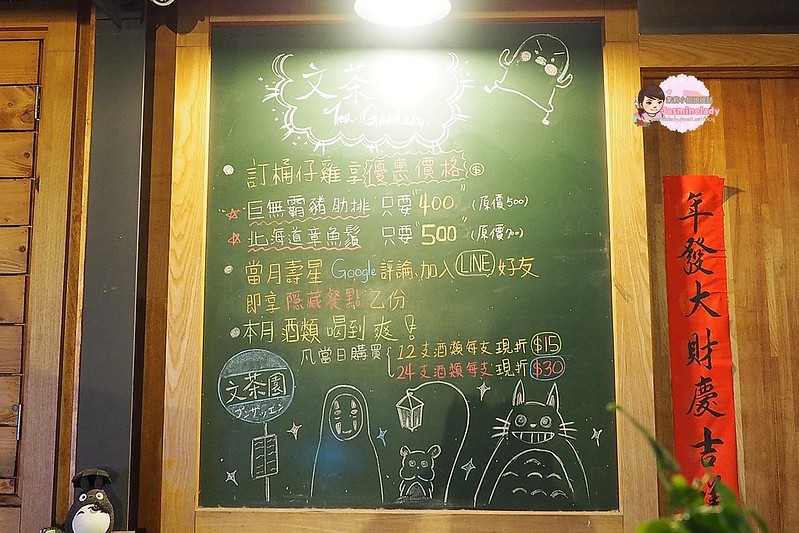 文茶園
Tea Garden
訂桶仔雞享優惠價格$
巨無霸豬肋排 只要"400"(原價500)
北海道章魚鬚 只要"500"(原價700)
當月壽星 Google評論、加入LINE好友
即享隱藏餐點乙份
本月酒類喝到爽!
凡當日購買
12支酒類每支現折$15
24支酒類每支現折$30
文茶園
年發大財慶吉祥
Jasminelady